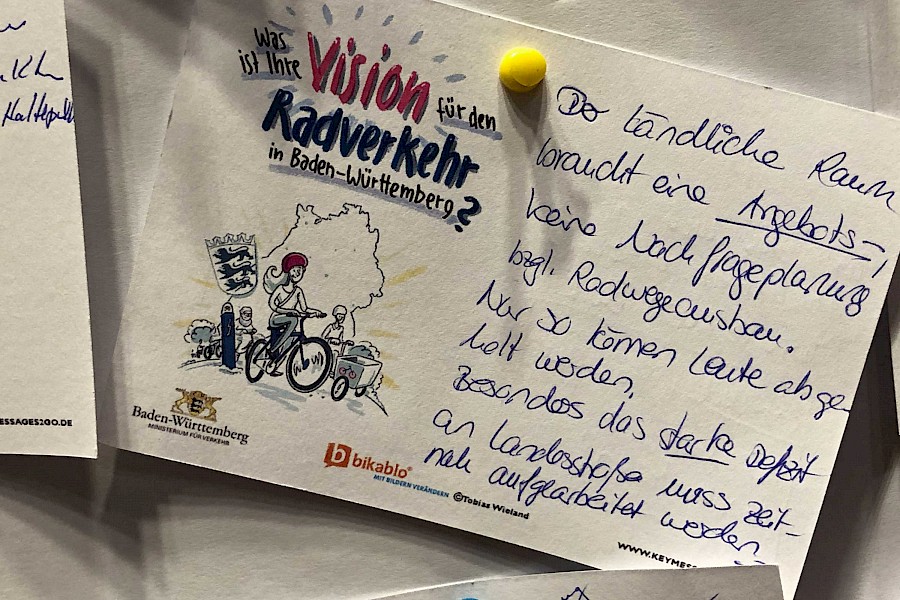 Was
ist Ihre Vision für den
Radverkehr
in Baden-Württemberg?
Baden-Württemberg
MINISTERIUM FÜR VERKEHR
bikablo®
MIT BILDERN VERÄNDERN
©Tobias Wieland
WWW.KEYMES
ESSAGES2GO.DE
Der ländliche Raum
braucht eine Angebots-,
keine Nachfrageplanung
bzgl. Radwegeausbau.
Nur so können Leute abge-
holt werden.
Besonders das starke Defizit
an Landesstraße muss zeit-
nah aufgearbeitet werden